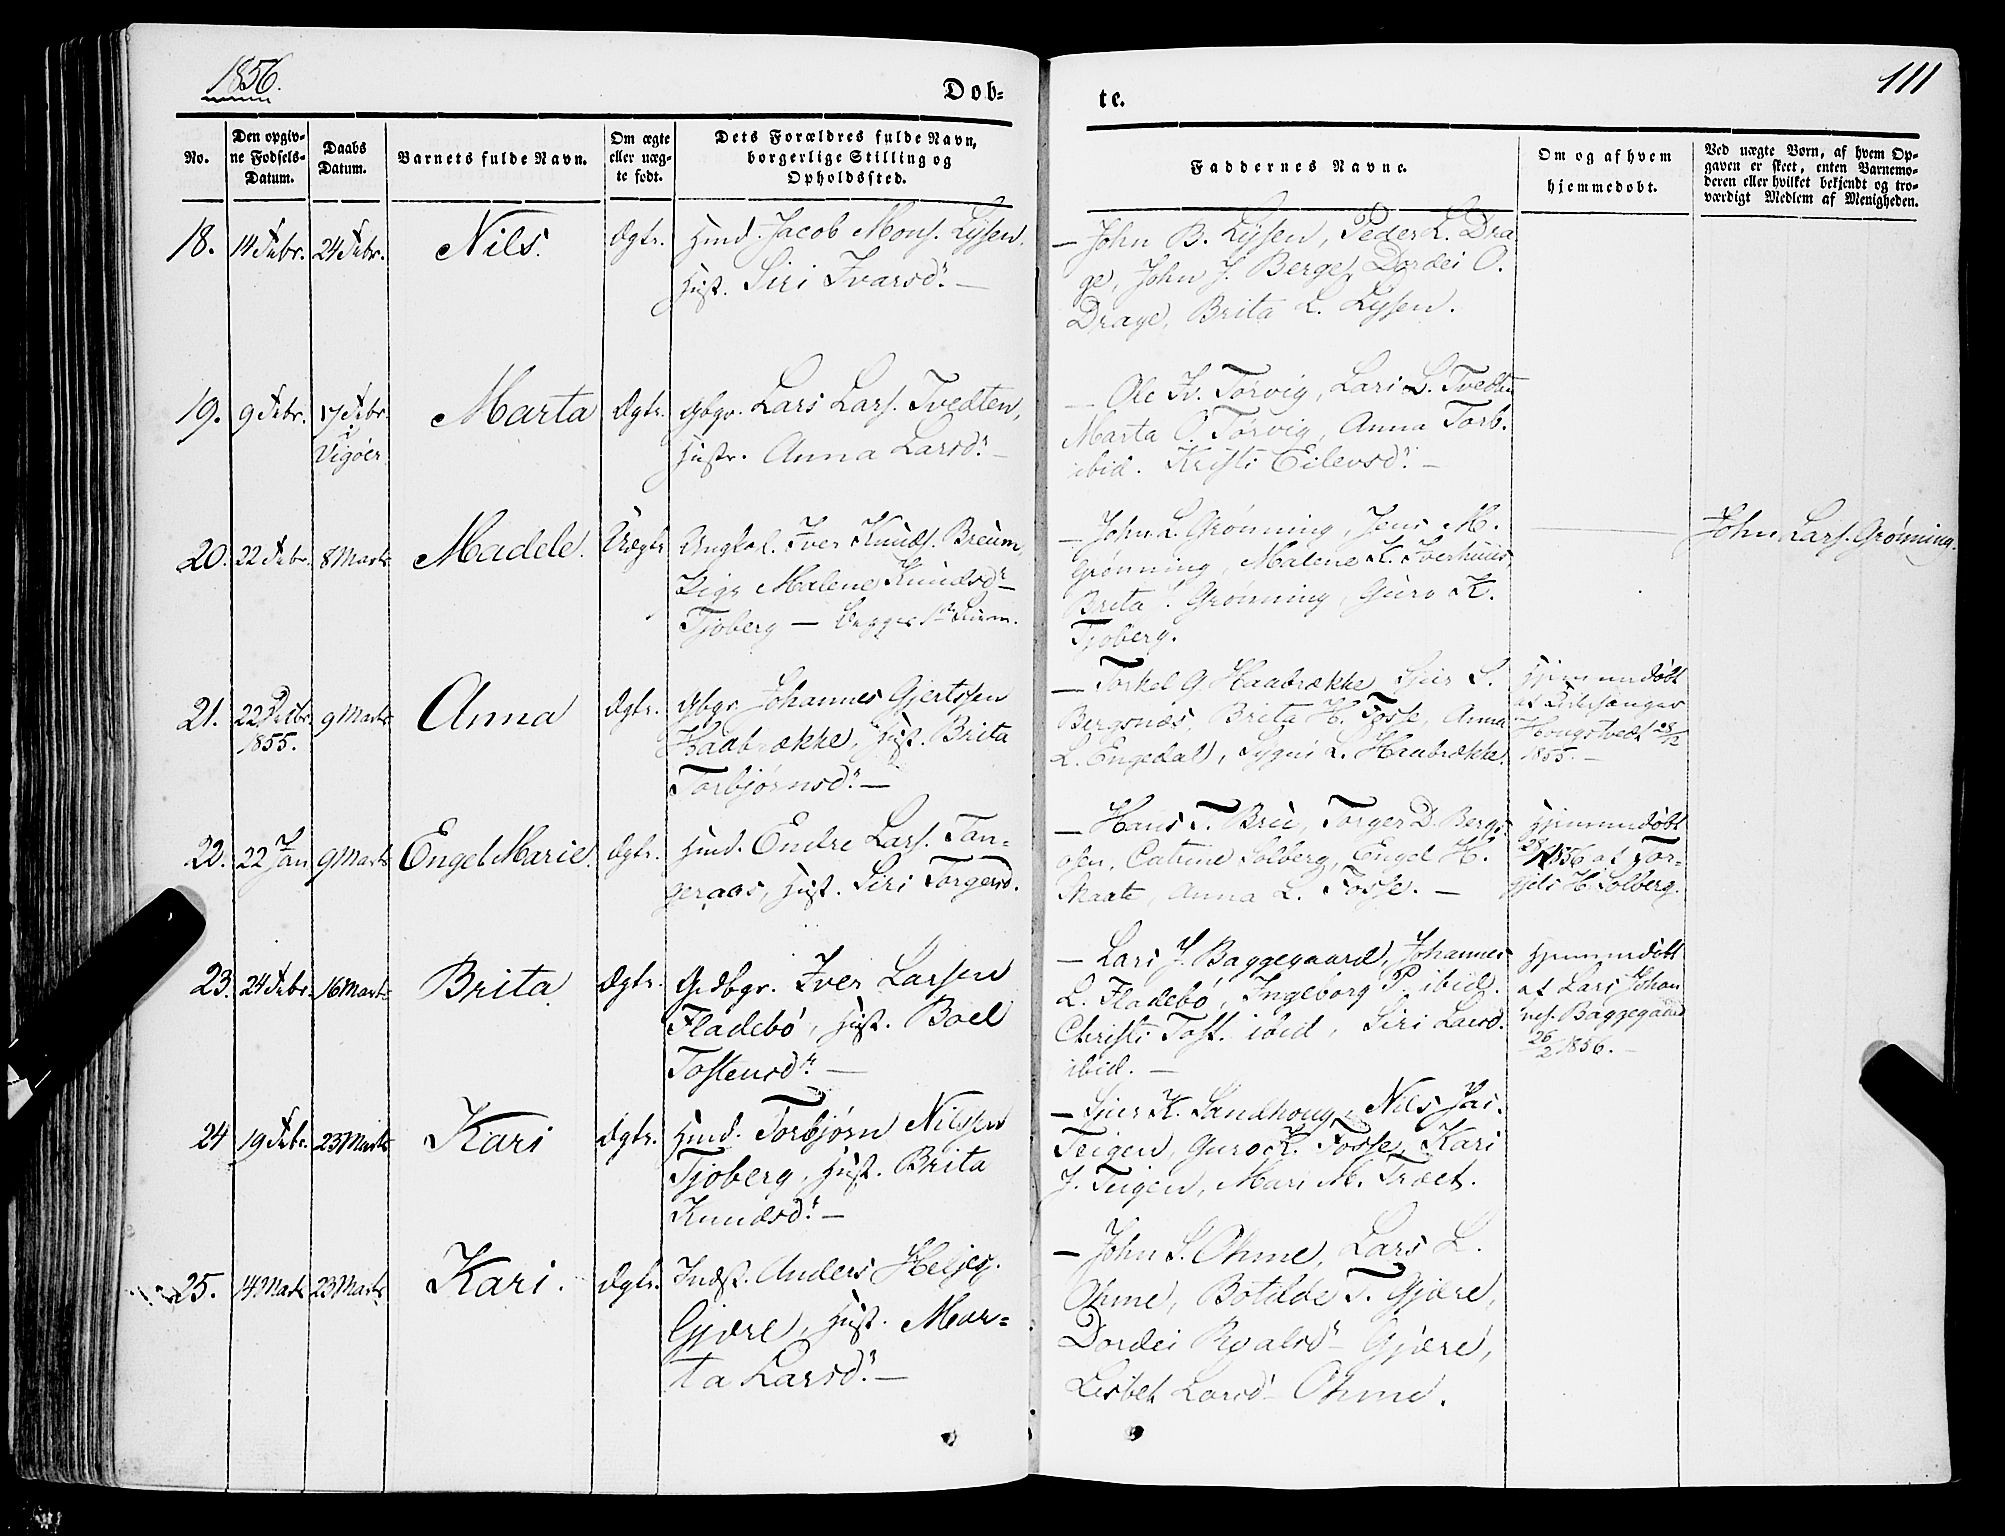 1856.
Døb-
te.
111
No.
Den opgiv-
ne Fødsels-
Datum.
Daabs
Datum.
Barnets fulde Navn.
Om ægte
eller uæg-
te født.
Dets Forældres fulde Navn,
borgerlige Stilling og
Opholdssted.
Faddernes Navne.
Om og af hvem
hjemmedøbt.
Ved uægte Børn, af hvem Op-
gaven er skeet, enten Barnemo-
deren eller hvilket bekjendt og tro-
værdigt Medlem af Menigheden.
18. 14 Febr. 24 Febr. Nils. Ægte.
Jacob Mons. Lysen,
Hust. Siri Ivarsdr. —
— John B. Lysen, Peder L. Dra
ge, John J. Berge, Dordei O.
Drage, Brita L. Lysen.
19. 9 Febr. 17 Febr. Marta Ægte.
i
Vigøer
Gbgr. Lars Lars. Tvedten,
Hustr. Anna Larsdr. —
— Ole Iv. Torvig, Lars L. Tvedten
Marta O. Torvig, Anna Torb.
ibid. Kristi Eilevsdr. —
20. 22 Febr. 8 Marts Madele. Uægte
Ungkal. Iver Knuds. Breum,
Pige Malene Knudsdr
Tjoberg —
— John L. Grønning, Jens M.
Grønning, Malene K.
Brita Grønning, Guro K.
Tjoberg.
John Lars. Grønning.
21. 22 Decbr. 9 Marts Anna Ægte.
1855.
Gbgr. Johannes Gjertssen
Haabrække, Hust. Brita
Torbjørnsdr. —
— Torkel G. Haabrække, Sjur S.
Bergsnæs, Brita H. Fosse, Anna
L. Engedal, Sygni L. Haabrække.
Hjemmedøbt
af Kirkesanger
Hougstvedt 28/12
1855. —
22. 22 Jan 9 Marts Engel Marie. Ægte.
Huusmd. Endre Lars. Tan-
geraas, Hust. Siri Torgersd.
— Hans T. Brue, Torger D. Bergs
osen, Catrine Solberg, Engel H.
Skaate, Anna L. Fosse. —
Hjemmedøbt
1856 af Tor-
gjels H. Solberg.
23. 24 Febr. 16 Marts Brita Ægte.
Gdbgr. Iver Larsen
Fladebø, Hust. Boel
Tostensdr. —
— Lars J. Baggegaard, Johannes
L. Fladebø, Ingeborg P. ibid.
Christi Tost. ibid, Siri Larsd.
ibid. —
Hjemmedøbt
af Lars Johan
nes. Baggegaard
26/2 1856. —
24 19 Febr. 23 Marts Kari Ægte.
Torbjørn Nilssen
Tjoberg, Hust. Brita
Knudsdr. —
— Sjur K. Sandhoug, Nils Jac.
Teigen, Guro K. Fosse, Kari
J. Teigen, Mari M. Træet.
25. 14 Marts 23 Marts Kari. Ægte.
Indst. Anders Heljes.
Gjære, Hust. Mar-
ta Larsdr. —
— John S. Ohme, Lars L.
Ohme, Botilde T. Gjære,
Dordei Roalsdr Gjære,
Lisbet Larsdr Ohme.